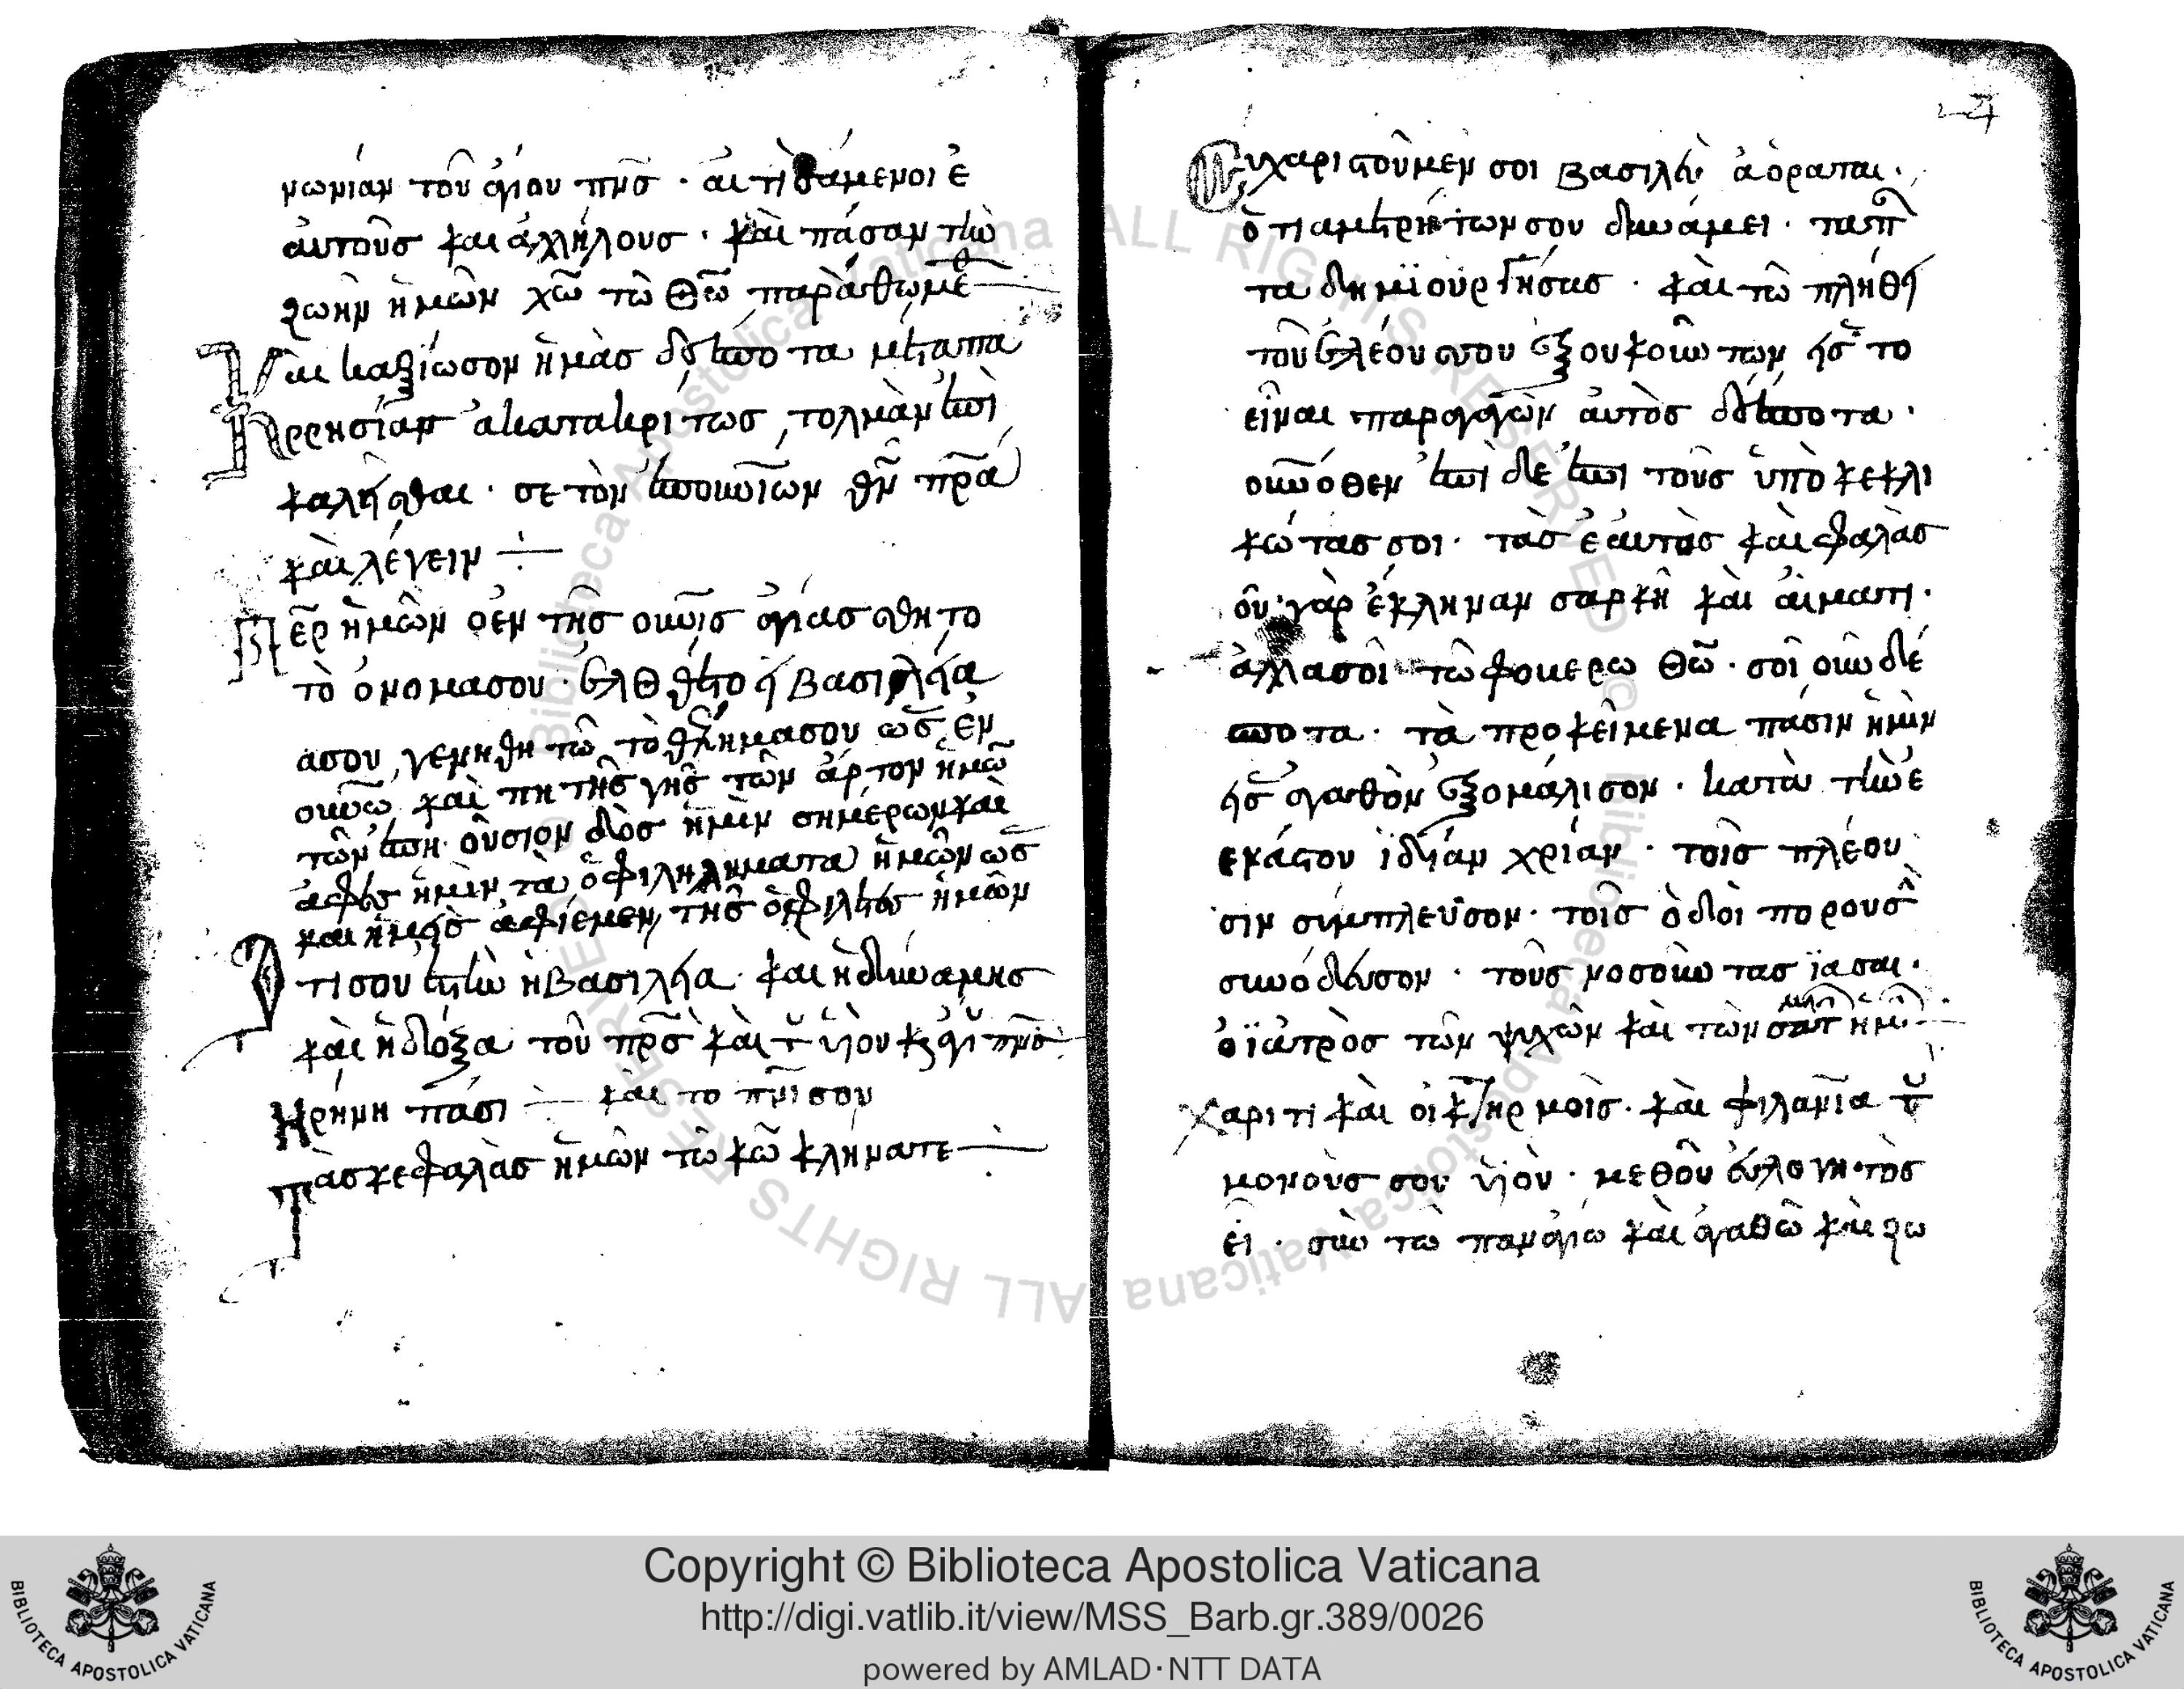 νωνίαν τοῦ ἁγίου πν̅σ · αἰτησάμενοι ἑ
αυτοὺσ καὶ ἀλλήλουσ · καὶ πάσαν τὴν
ζωὴν ἡμῶν χω̅ τῶ θω̅ παραθώμε
Καὶ καταξίωσον ἡμὰσ δέσποτα μετὰ πα
ρρησίαν ἀκατακρίτωσ, τολμὰν ἐπι
καλήσθαι · σὲ τὸν ἐπουνιων θν̅ πρ̅α
καὶ λέγειν
Περ ἡμῶν ὁ ἐν τῆσ οὐνισ ἁγιασθητο
τὸ ὄνομασου · ἐλθθέτο ἡ βασιλεία
ασου, γενηθη τῶ τὸ θέλημασου ὡσ ἐν
ουνω καὶ πη τῆσ γῆσ τῶν ἄρτον ἡμῶ
τῶν ἐπη ούσιον δὸσ ἡμὶν σημέρων καὶ
ἄφεσ ἡμὶν τὰ ὀφιληλήματα ἡμῶν ὡσ
και ἡμεῖσ ἀφίεμεν τῆσ ὀφιλέτεσ ἡμῶν
Οτι σου ἐστὶν ἡ βασιλεία · καὶ ἡ δύναμησ
καὶ ἡ δόξα τοῦ πρ̅σ καὶ τοῦ ὑιοῦ κ ἁγι πν̅σ
Ηρήνη πάσι καὶ το πν̅ι σου
Τὰσ κεφαλὰσ ἡμῶν τῶ κω̅ κλήνατε
27
Ευχαριστοῦμεν σοι βασιλεῦ ἀόρατε ·
ὁ τῆ ἀμετρήτων σου δυνάμει · τα π
τα δημϊουργήσασ · καὶ τῶ πλήθη
τοῦ ἐλέουσου ἐξ ουκοὺν των εἰσ τὸ
εἶναι παραγαγὼν αυτὸσ δέσποτα ·
οὐνόθεν ἔπιδε ἐπι τοὺσ ὑποκεκλι
κώτασ σοι · τὰσ ἑαυτὰσ καὶ φαλὰσ
οὐ γὰρ ἔκληναν σαρκὴ καὶ αἵματι ·
ἀλλασοὶ τῶ φουερω θω̅ · σοὶ οὖν δέ
σποτα · τὰ προκείμενα πάσιν ἡμὶν
εἰσ ἀγαθὸν ἐξομάλισον · κατὰ τὴν ἑ
εκάστου ἰδίαν χρίαν · τοῖσ πλέου
σιν σύμπλευσον · τοῖσ ὁδοὶ πορουσ
συνόδευσον · τοὺσ νοσοὺν τασ ἵασαι ·
ὁ ϊατρὸσ τῶν ψυχῶν καὶ τῶν σωμτ ἡμ
Χαριτι καὶ οἰκτηρμοὶσ · καὶ φιλανι̅α τοῦ
μονοὺσ σου ὑιοῦ · μεθοῦ ἐυλογητὸσ
εἶ · σὺν τῶ παναγίω καὶ ἀγαθῶ καὶ ζω
Copyright © Biblioteca Apostolica Vaticana
http://digi.vatlib.it/view/MSS_Barb.gr.389/0026
powered by AMLAD·NTT DATA
BIBLIOTECA APOSTOLICA VATICANA
BIBLIOTECA APOSTOLICA VATICANA
© Biblioteca Apostolica Vaticana ALL RIGHTS RESERVED © Biblioteca Apostolica Vaticana ALL RIGHTS RESERVED